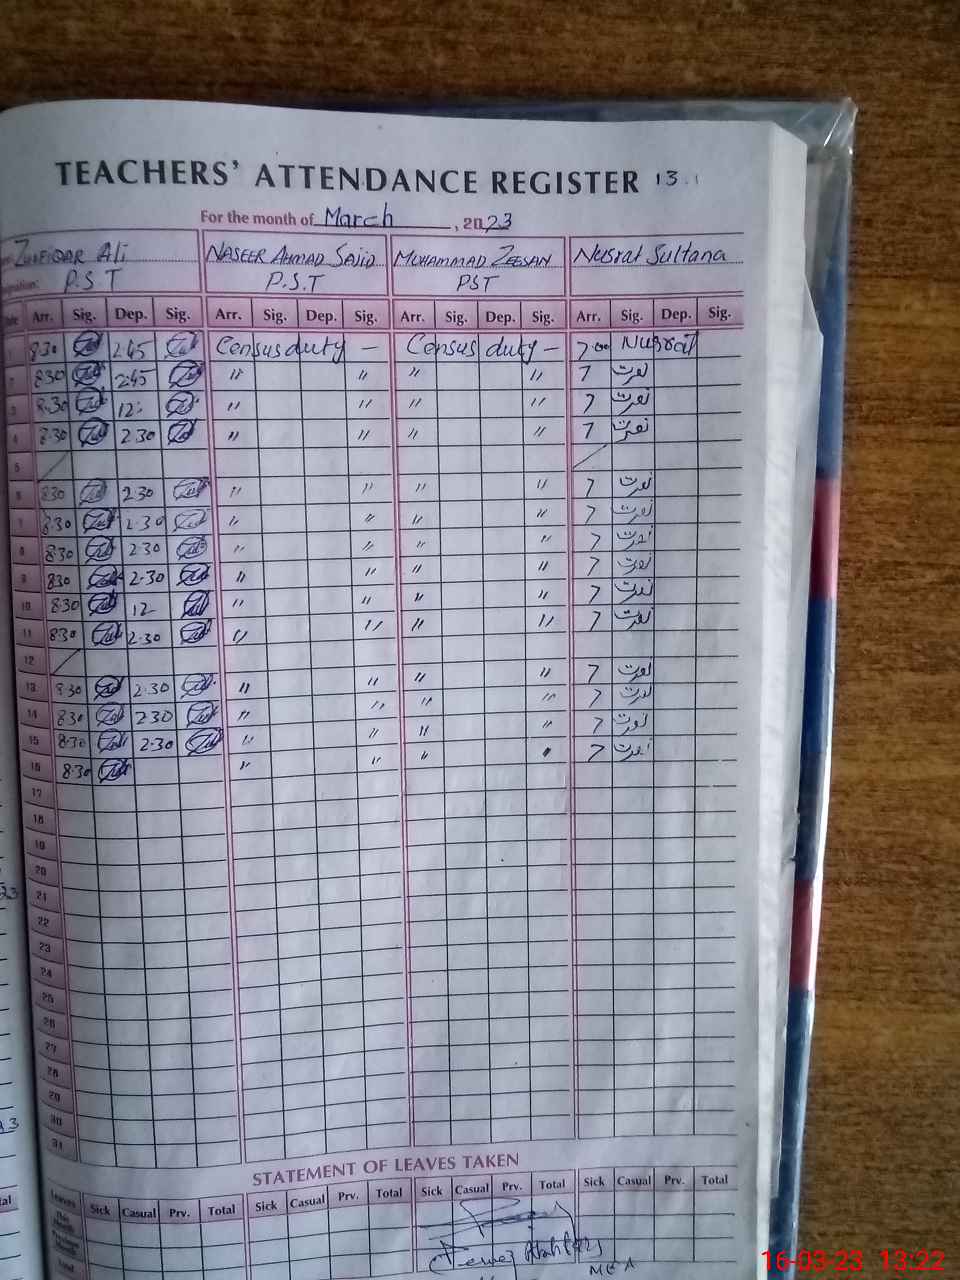 TEACHERS' ATTENDANCE REGISTER 13
For the month of March, 2023
Zulfiqar Ali NASEER AHMAD SAJID MUHAMMAD ZEESAN Nusrat Sultana
P.S.T P.S.T PST
Arr. Sig. Dep. Sig. Arr. Sig. Dep. Sig. Arr. Sig. Dep. Sig. Arr. Sig. Dep. Sig.
1 8.30 2.45 Census duty — Census duty — 7.00 Nusrat
2 8.30 2.45 〃 〃 〃 〃 7 نصرت
3 8.30 12: 〃 〃 〃 〃 7 نصرت
4 8.30 2.30 〃 〃 〃 〃 7 نصرت
5
6 8.30 2.30 〃 〃 〃 〃 7 نصرت
7 8.30 2.30 〃 〃 〃 〃 7 نصرت
8 8.30 2.30 〃 〃 〃 〃 7 نصرت
9 8.30 2.30 〃 〃 〃 〃 7 نصرت
10 8.30 12 〃 〃 〃 〃 7 نصرت
11 8.30 2.30 〃 〃 〃 〃 7 نصرت
12
13 8.30 2.30 〃 〃 〃 〃 7 نصرت
14 8.30 2.30 〃 〃 〃 〃 7 نصرت
15 8.30 2.30 〃 〃 〃 〃 7 نصرت
16 8.30 〃 〃 〃 7 نصرت
17
18
19
20
21
22
23
24
25
26
27
28
29
30
31
STATEMENT OF LEAVES TAKEN
Leaves Sick Casual Prv. Total Sick Casual Prv. Total Sick Casual Prv. Total Sick Casual Prv. Total
This Month
Total
MEA
16-03-23 13:22